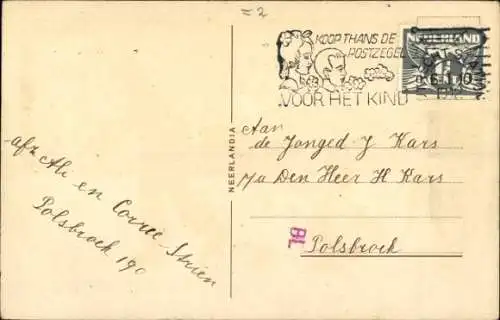 = 2
KOOP THANS DE
POSTZEGEL
VOOR HET KIND
NEDERLAND
NEERLANDIA
Aan
de Jonged. J Kars
p/a Den Heer H Kars
BL
Polsbroek
afz Ali en Corrie Strien
Polsbroek 190